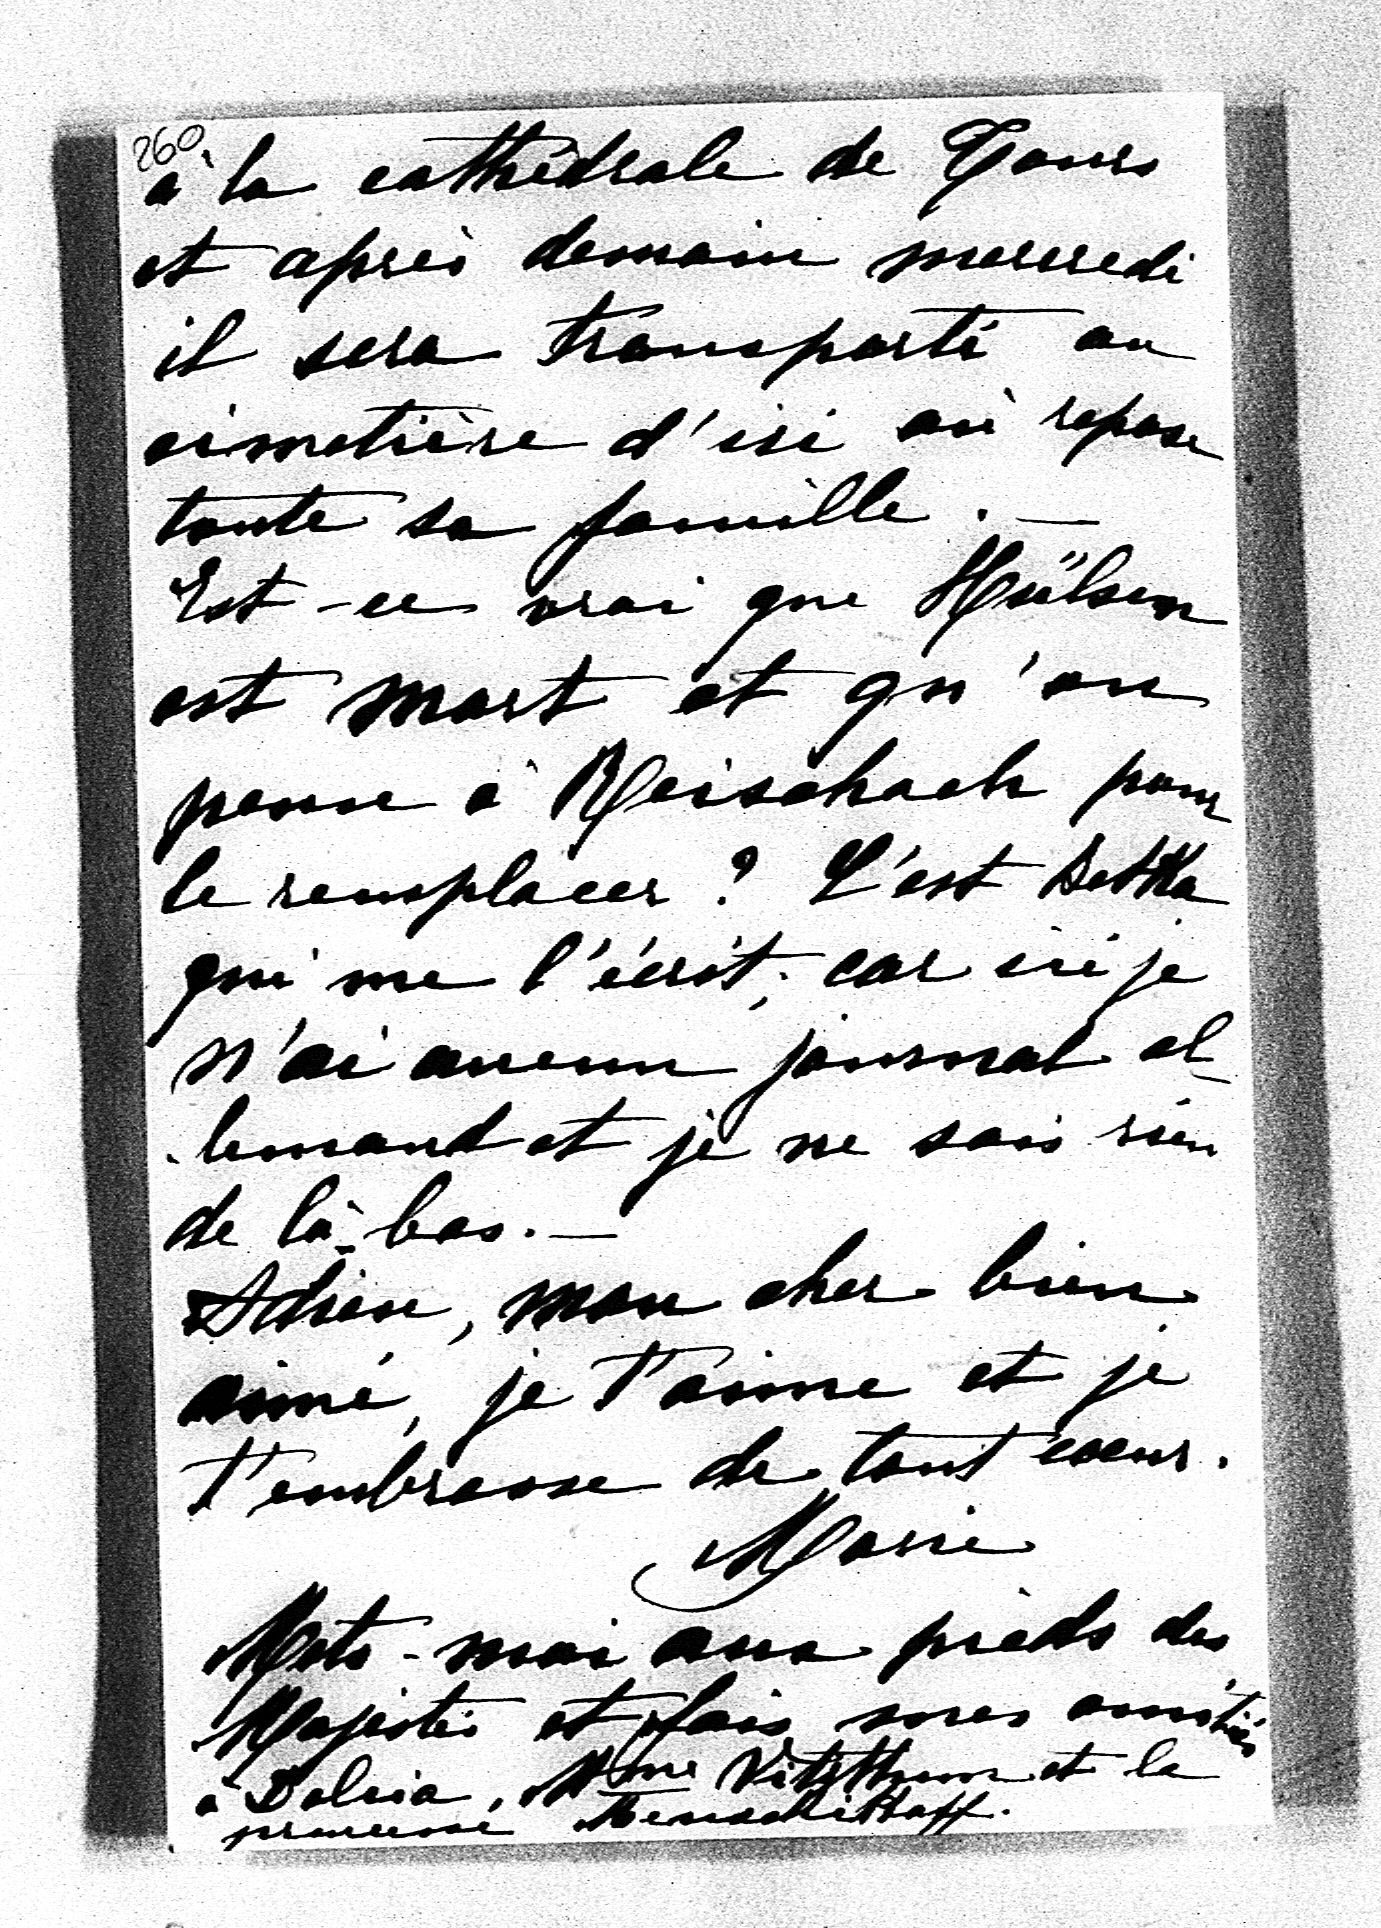 260
à la cathédrale de Tours
et après demain mercredi
il sera transporté au
cimetière d'ici où repose
toute sa famille. —
Est-ce vrai que Hülsen
est mort et qu'on
pense à Reischach pour
le remplacer? C'est Betka
qui me l'écrit, car ici je
n'ai aucun journal al-
-lemand et je ne sais rien
de là-bas. —
Adieu, mon cher bien
aimé, je t'aime et je
t'embrasse de tout coeur.
Marie
Mets-moi aux pieds des
Majestés et fais mes amitiés
à Dalsia, Mme Vitzthum et la
princesse